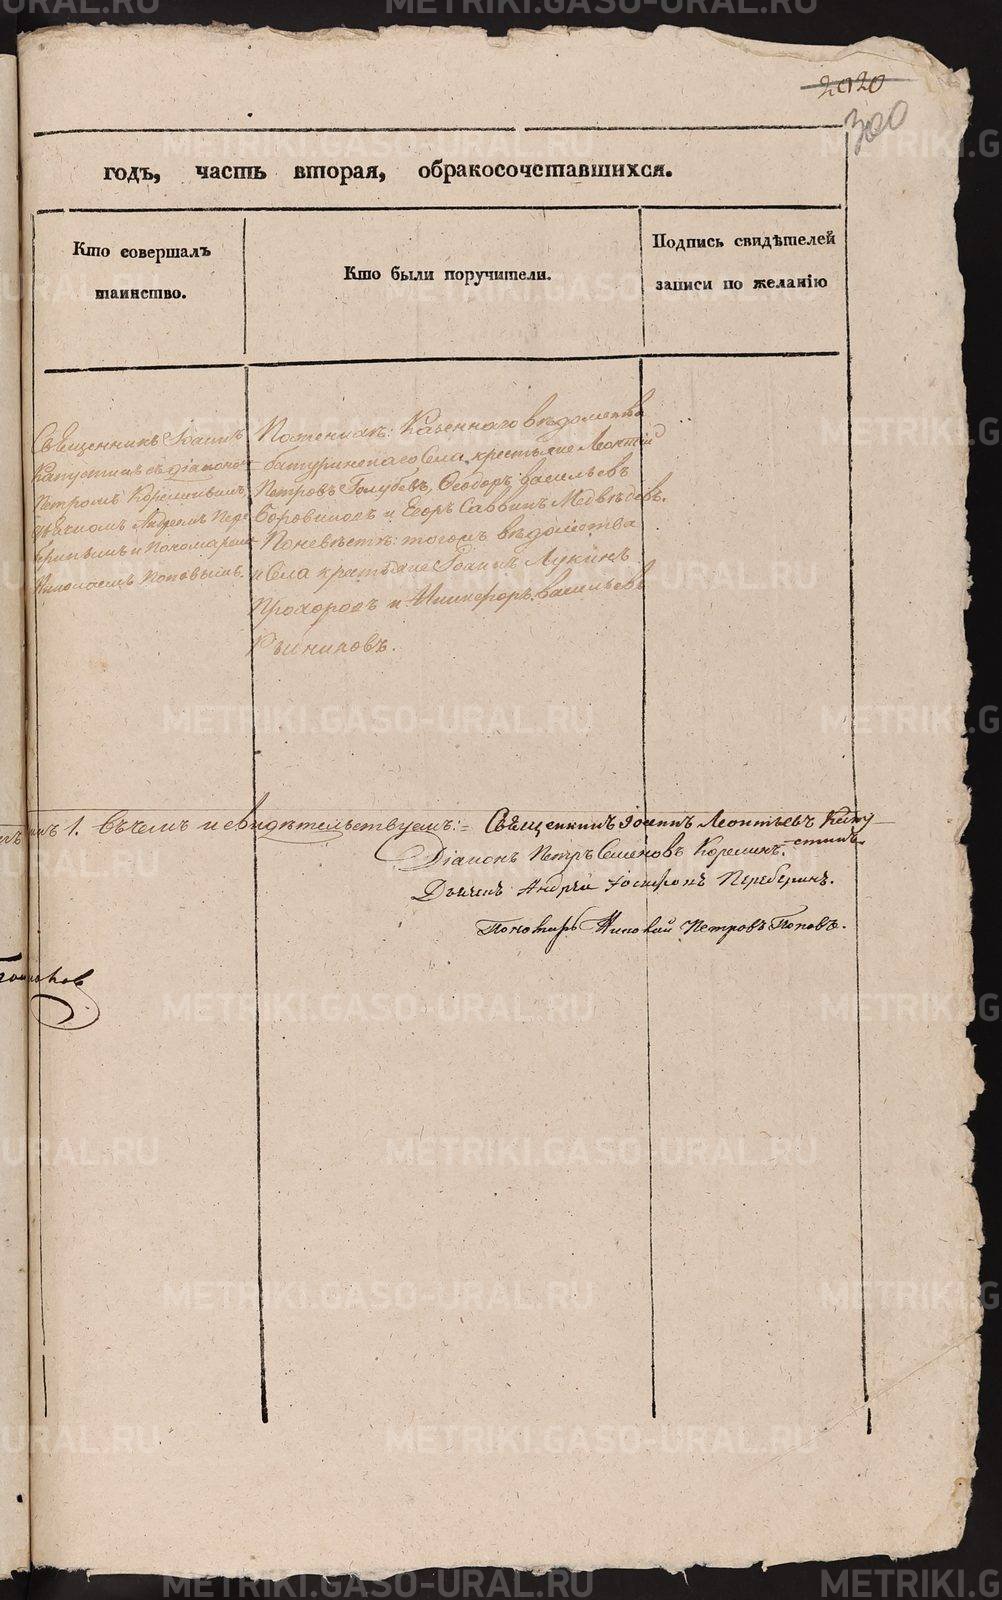 300
годъ, часть вторая, обракосочетавшихся.
Кто совершалъ
таинство.
Кто были поручители.
Подпись свидѣтелей
записи по желанію
Священникъ Іоаннъ
Капустинъ съ діакономъ
Петромъ Корелинымъ,
дьячкомъ Андреемъ Пере
беринымъ и Пономаремъ
Николаемъ Поповымъ.
По женихѣ: Казеннаго вѣдомства
батуринскаго села крестьяне Леонтій
Петровъ Голубевъ, Ѳеодоръ Васильевъ
Боровиковъ и Егоръ Саввинъ Медвѣдевъ.
По невѣстѣ: того жъ вѣдомства
и села крестьяне Іоаннъ Лукинъ
Прохоровъ и Никифоръ Васильевъ
1. Въ чемъ и свидѣтельствуемъ:= Священникъ Іоаннъ Леонтьевъ Капу
стинъ.
Діаконъ Петръ Семеновъ Корелинъ.
Дьячекъ Андрей Переберинъ.
Пономарь Николай Петровъ Поповъ.
METRIKI.GASO-URAL.RU